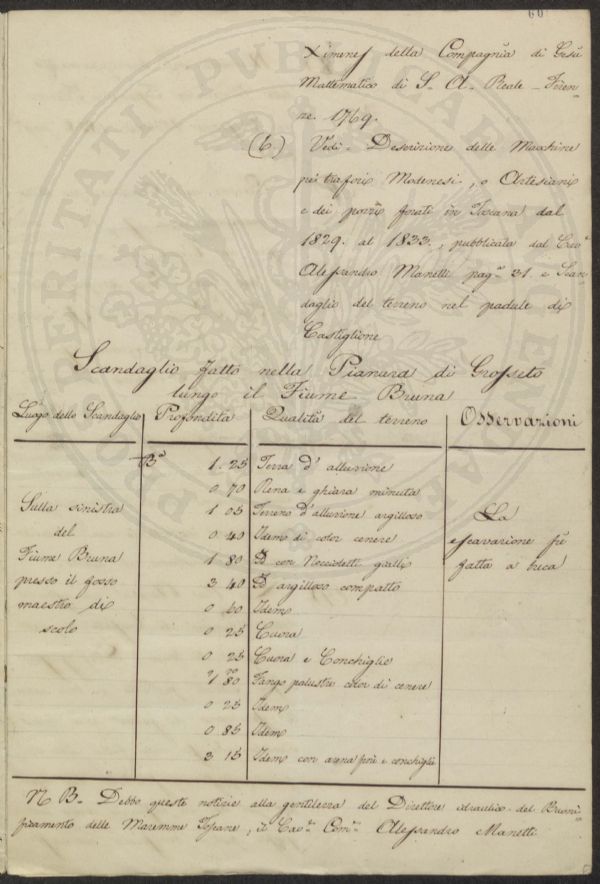 60
Ximenes della Compagnia di Gesù
Mattematico di S. A. Reale - Firen=
ze. 1769.
(6.) Vedi- Descrizione delle Macchine
pei trafori Modenesi, o Artesiani
e dei pozzi forati in Toscana dal
1829. al 1833., pubblicata dal Cave
Alessandro Manetti pag.a 31. e Scan=
daglio del terreno nel padule di
Castiglione
Scandaglio fatto nella Pianura di Grosseto
lungo il Fiume Bruna
Luogo dello Scandaglio Profondità Qualità del terreno Osservazioni
Ba 1. 25 Terra d'alluvione
0 70 Rena e ghiara minuta
Sulla sinistra 1 05 Terreno d'alluvione argilloso La
del 0 40 Idem di color cenere escavazione fù
Fiume Bruna 1 80 Id con Noccioletti gialli fatta a buca
presso il fosso 3 40 Id argilloso compatto
maestro di 0 60 Idem
scolo 0 25 Cuora
0 25 Cuora e Conchiglie
1 80 Fango palustre color di cenere
0 25 Idem
0 85 Idem
3 15 Idem con arena fine e conchiglie
N B- Debbo queste notizie alla gentilezza del Direttore idraulico del Buoni=
ficamento delle Maremme Toscane, il Cav.re Com.re Alessandro Manetti